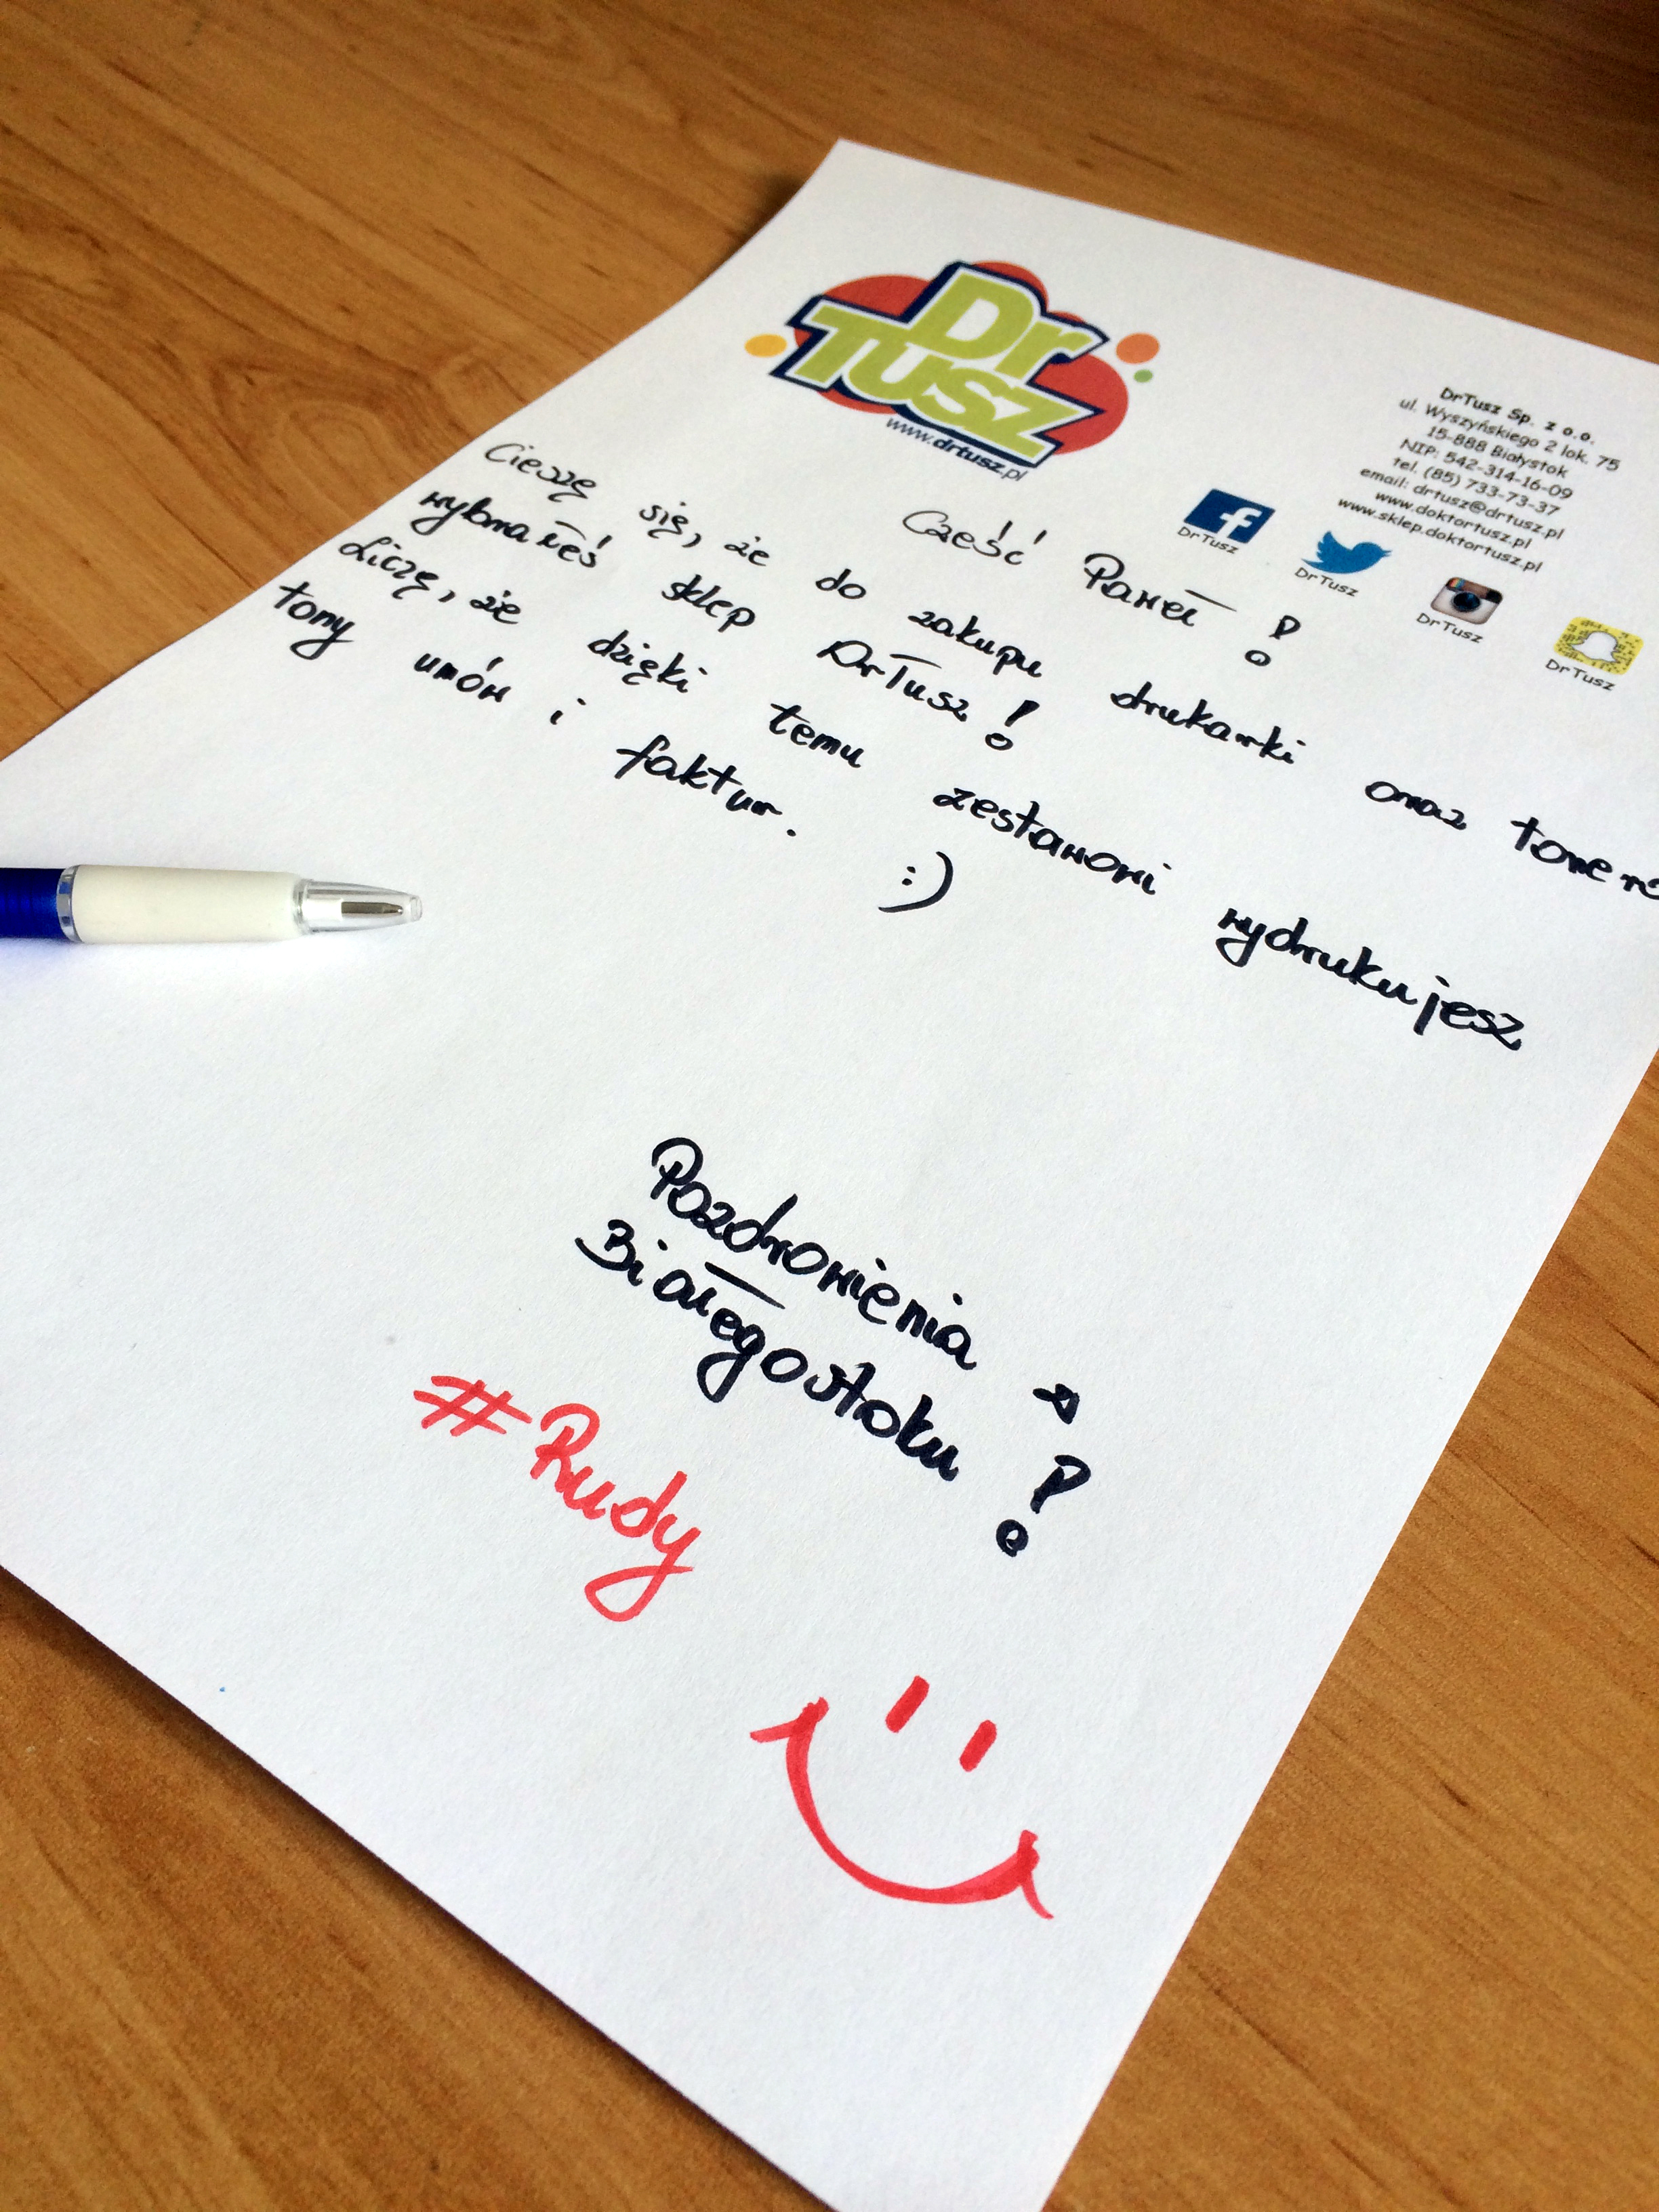 Dr
Tusz
www.drtusz.pl
DrTusz Sp. z o.o.
ul. Wyszyńskiego 2 lok. 75
15-888 Białystok
NIP: 542-314-16-09
tel. (85) 733-73-37
email: drtusz@drtusz.pl
www.doktortusz.pl
www.sklep.doktortusz.pl
DrTusz
DrTusz
DrTusz
DrTusz
Cześć Paweł!
Cieszę się, że do zakupu drukarki oraz toneró
wybrałeś sklep DrTusz!
Liczę, że dzięki temu zestawowi wydrukujesz
tony umów i faktur.
:)
Pozdrowienia z
Białegostoku!
#Rudy